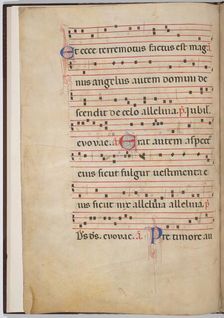 Et ecce terremotus factus est mag
nus angelus autem domini de
scendit de celo alleluia. p̄. Jubil.
evovae. a Erat autem aspec
eius sicut fulgur vestimenta e
ius sicut nix alleluia alleluia. p̄
evovae. a Pre timore au